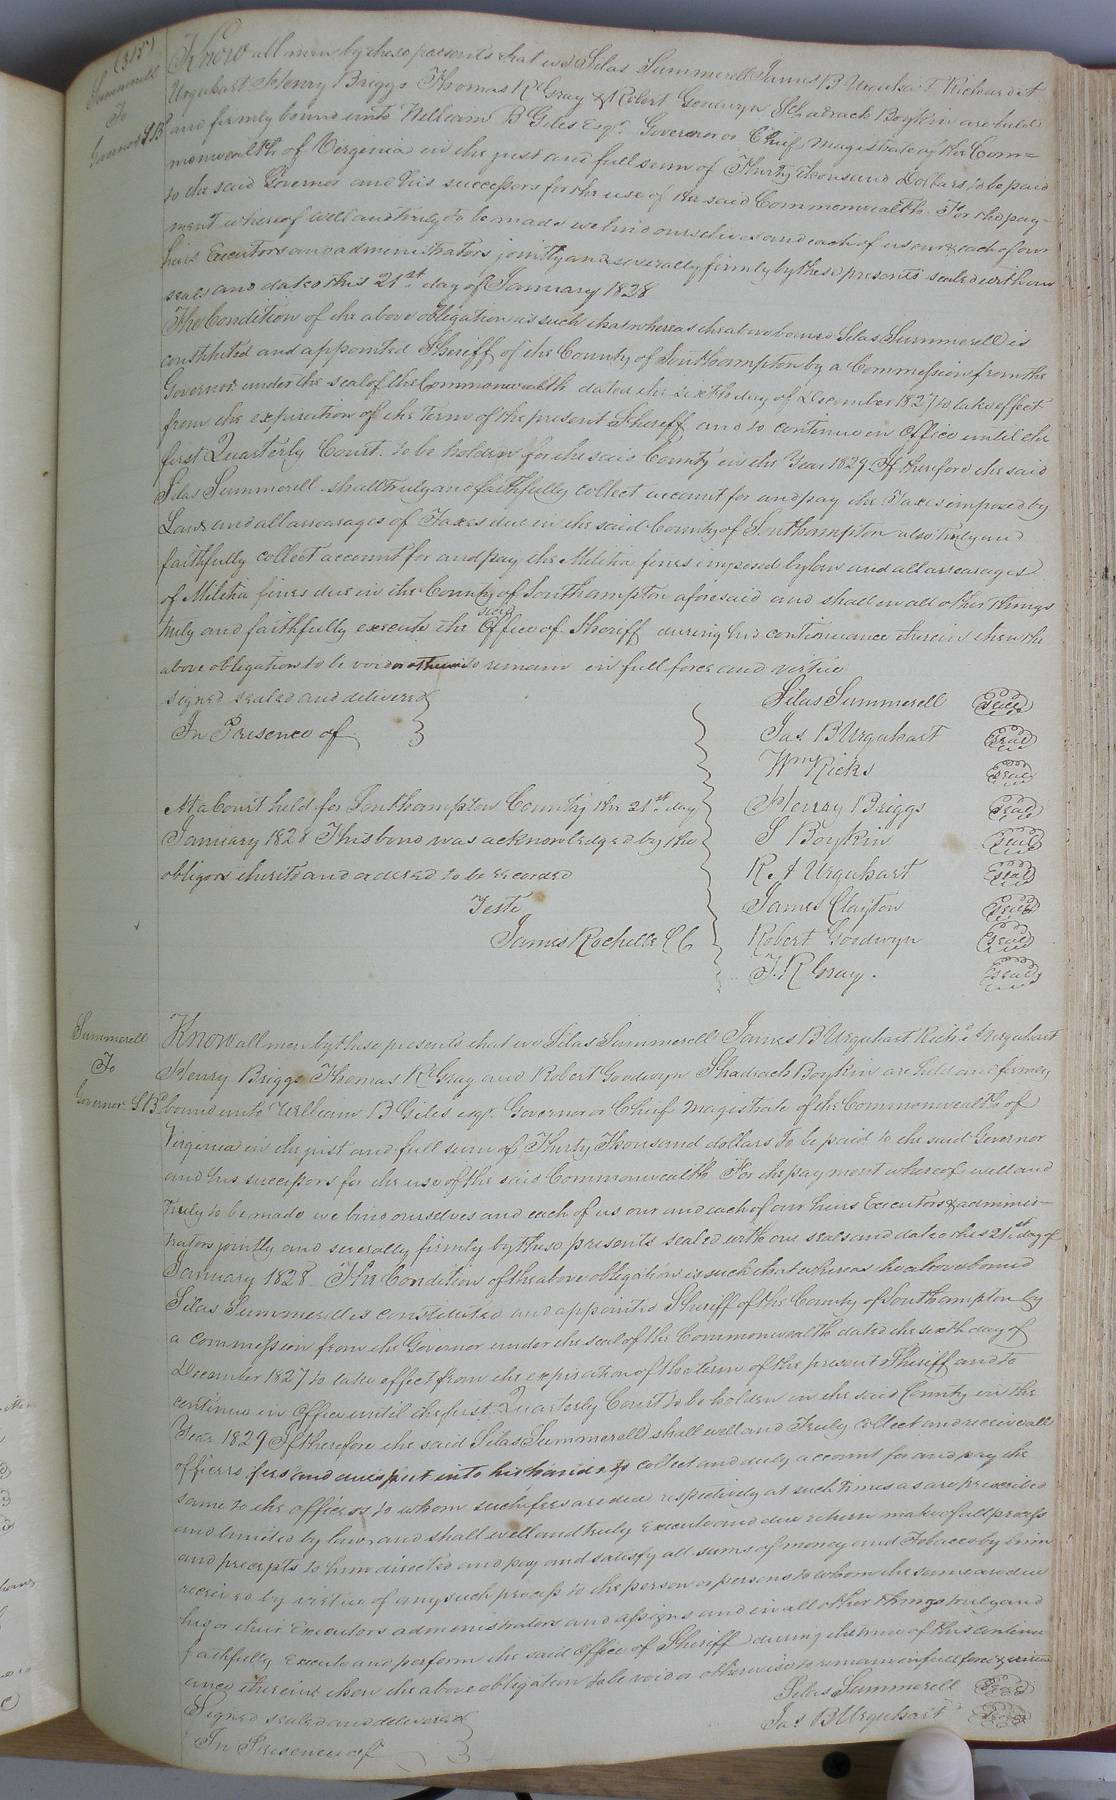 (315)
Summerell
To
Governor S B
Know all men by these presents that we Silas Summerell James B Urquhart Richard A
Urquhart Henry Briggs Thomas R Gray & Robert Goodwyn Shadrach Boykin are held
and firmly bound unto William B Giles Esqr. Governor or Chief Magistrate of the Com=
monwealth of Virginia in the just and full sum of Thirty thousand Dollars to be paid
to the said Governor and his successors for the use of the said Commonwealth. For the pay-
ment whereof well and truly to be made we bind ourselves and each of us our & each of our
heirs Executors and administrators jointly and severally firmly by these presents sealed with our
seals and dated this 21st day of January 1828
The Condition of the above obligation is such that whereas the above bound Silas Summerell is
constituted and appointed Sheriff of the County of Southampton by a Commission from the
Governor under the seal of the Commonwealth dated the sixth day of December 1827 to take effect
from the expiration of the term of the present Sheriff and to continue in Office until the
first Quarterly Court to be holden for the said County in the Year 1829 If therefore the said
Silas Summerell shall truly and faithfully collect account for and pay the Taxes imposed by
Law & and all arrearages of Taxes due in the said County of Southampton also truly and
faithfully collect account for and pay the Militia fines imposed by law and all arrearages
of Militia fines due in the County of Southampton aforesaid and shall in all other things
truly and faithfully execute the said Office of Sheriff during his continuance therein then the
above obligation to be void or otherwise to remain in full force and virtue
Signed sealed and delivered
In Presence of
Silas Summerell seal
Jas. B Urquhart seal
Wm Ricks seal
Henry Briggs seal
S Boykin seal
R. A Urquhart seal
James Clayton seal
Robert Goodwyn seal
T. R Gray. seal
At a Court held for Southampton County the 21st day
January 1828 This bond was acknowledged by the
obligors thereto and ordered to be recorded
Teste
James Rochelle CC
Summerell
To
Governor S B
Know all men by these presents that we Silas Summerell James B Urquhart Richd A Urquhart
Henry Briggs Thomas R Gray and Robert Goodwyn Shadrach Boykin are held and firmly
bound unto William B Giles esqr. Governor or Chief Magistrate of the Commonwealth of
Virginia in the just and full sum of Thirty Thousand dollars to be paid to the said Governor
and his successors for the use of the said Commonwealth For the payment whereof well and
Truly to be made we bind ourselves and each of us our and each of our heirs Executors & adminis-
trators jointly and severally firmly by these presents sealed with our seals and dated this 21st day of
January 1828. The Condition of the above obligation is such that whereas the above bound
Silas Summerell is constituted and appointed Sheriff of the County of Southampton by
a commission from the Governor under the seal of the Commonwealth dated the sixth day of
December 1827 to take effect from the expiration of the term of the present Sheriff and to
continue in Office until the first Quarterly Court to be holden in the said County in the
Year 1829 If therefore the said Silas Summerell shall well and Truly collect and receive all
officers fees and dues put into his hands to collect and duly account for and pay the
same to the officers to whom such fees are due respectively at such times as are prescribed
and limited by law and shall well and truly execute and due return make of all process
and precepts to him directed and pay and satisfy all sums of money and Tobacco by him
received by virtue of any such process to the person or persons to whom the same are due
his or their Executors administrators and assigns and in all other things truly and
faithfully Execute and perform the said Office of Sheriff during the time of his continu
ance therein then the above obligation to be void or otherwise to remain in full force & virtue
Signed sealed and delivered
In Presence of
Silas Summerell Seal
Jas B Urquhart Seal